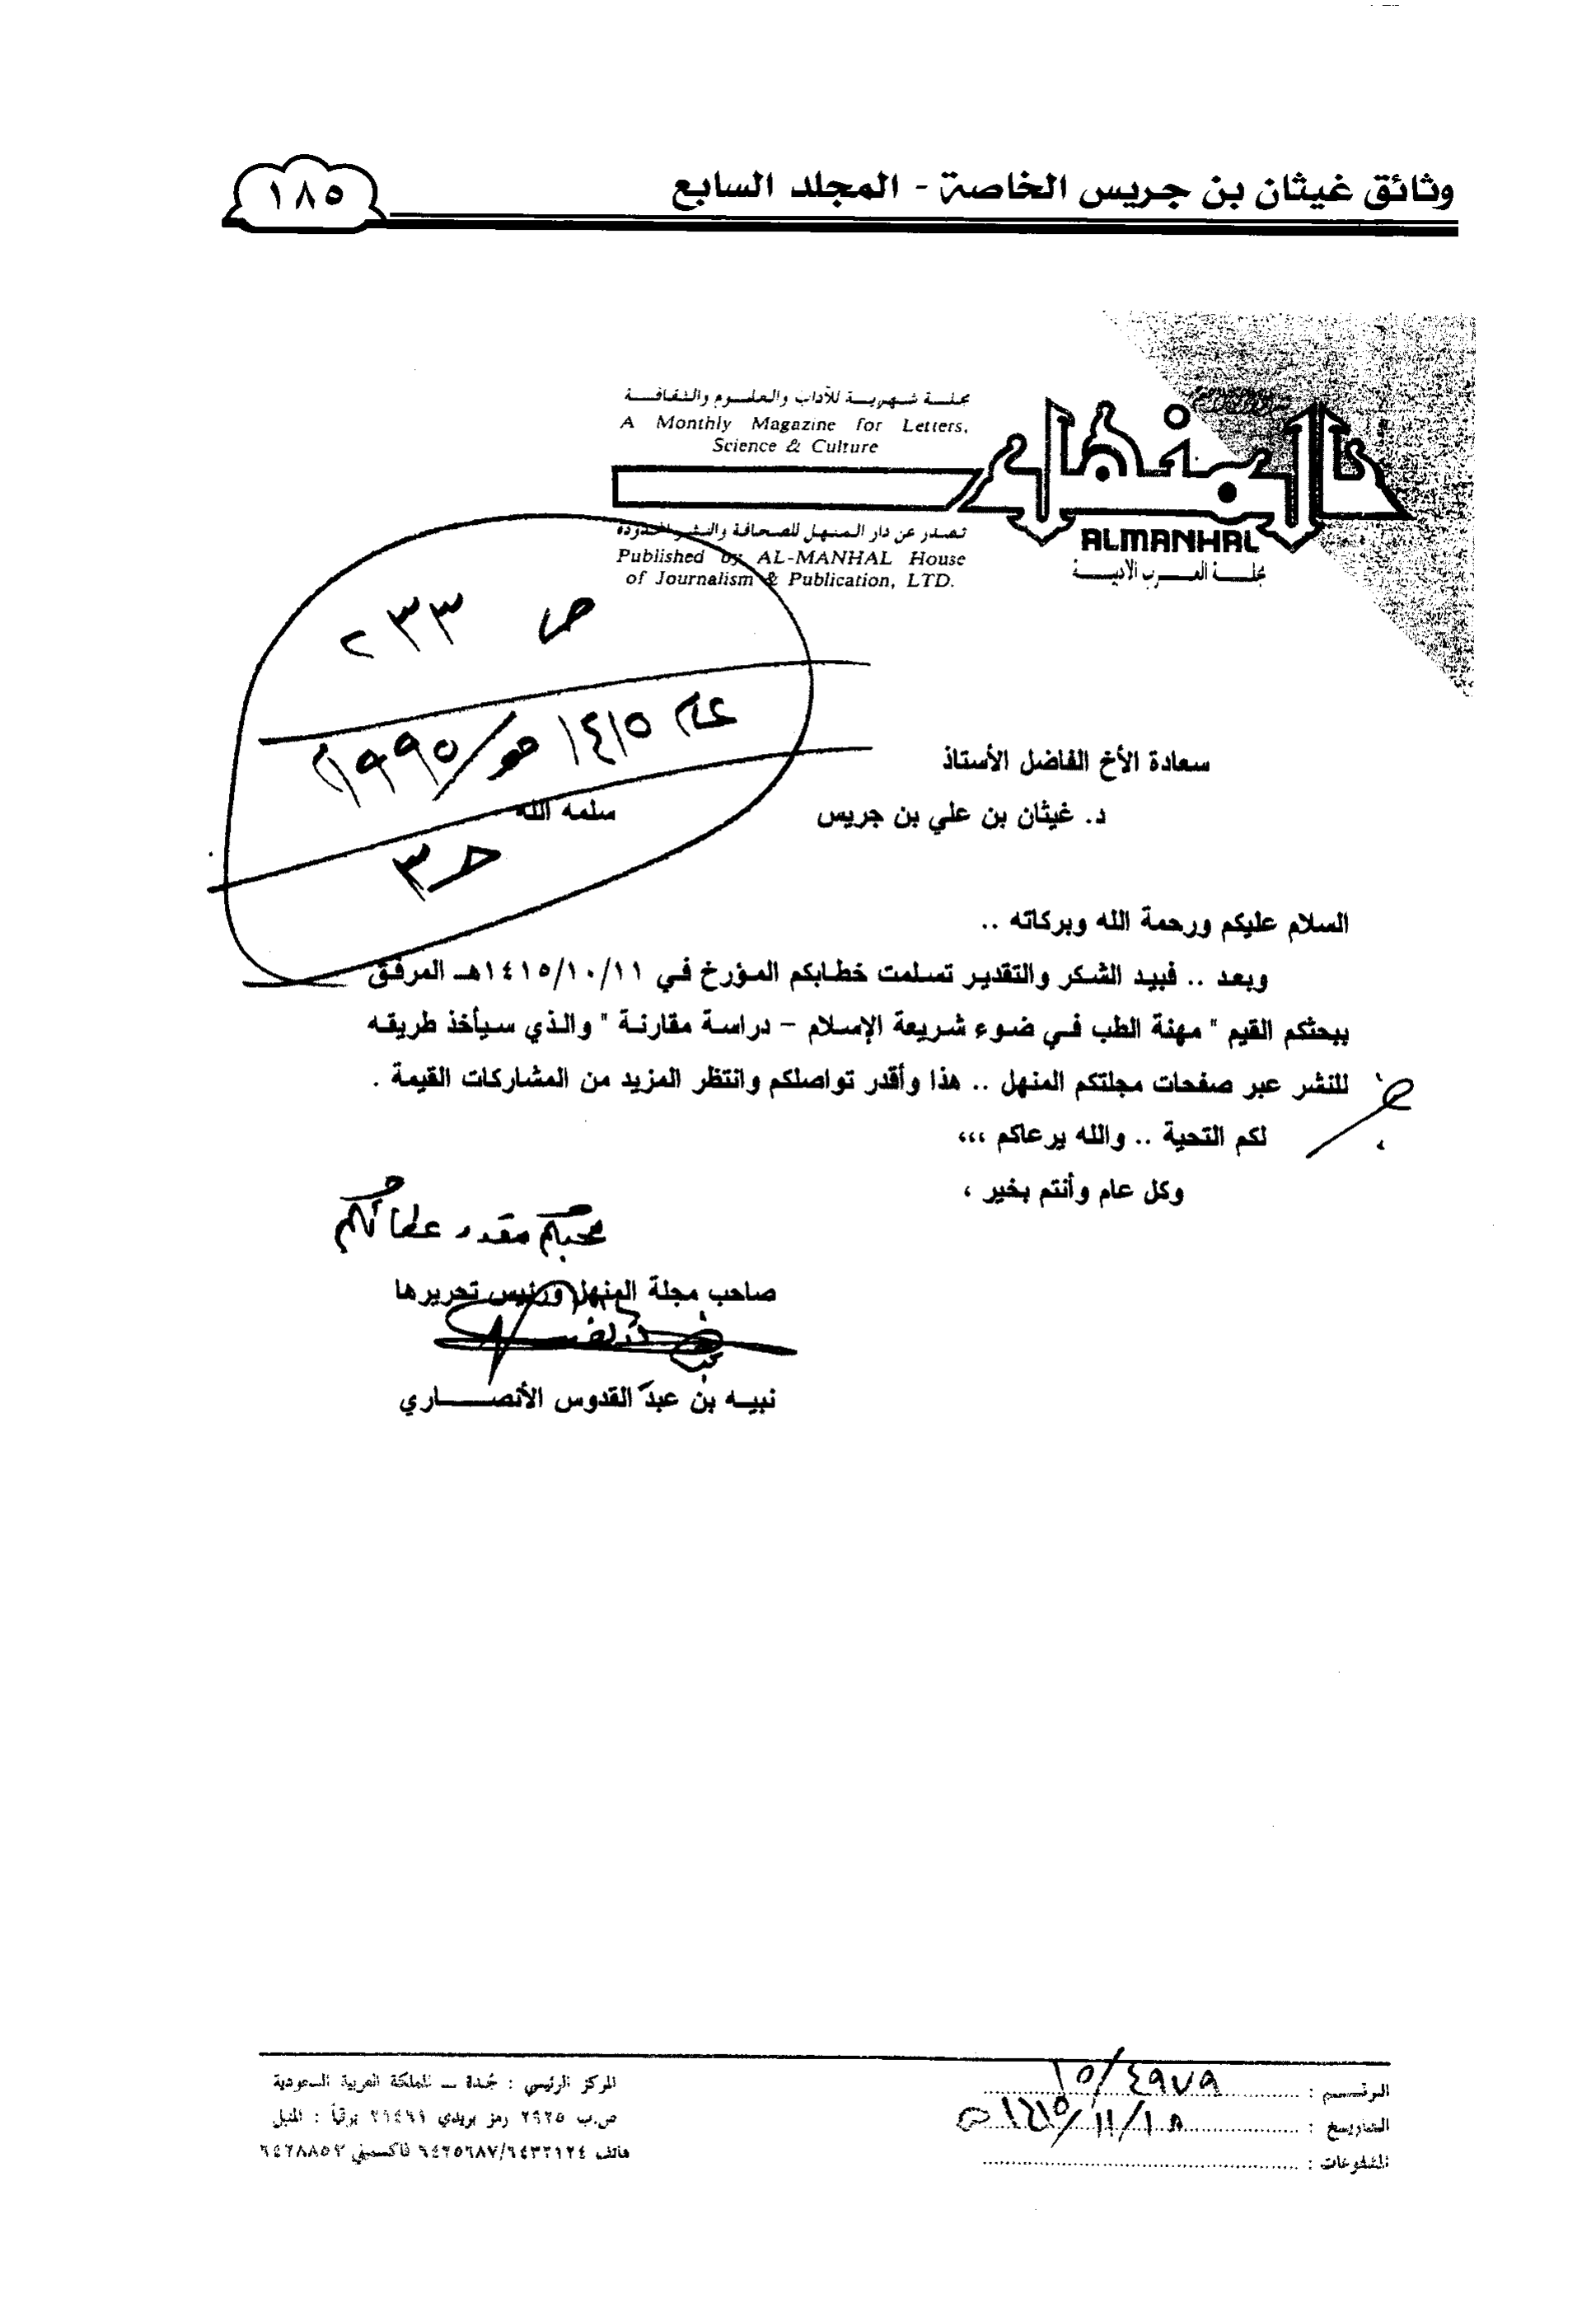 وثائق غيثان بن جريس الخاصة - المجلد السابع
١٨٥
مجلة شهرية للآداب والعلوم والثقافة
A Monthly Magazine for Letters,
Science & Culture
المنهل
ALMANHAL
مجلة العرب الأدبية
تصدر عن دار المنهل للصحافة والنشر المحدودة
Published by AL-MANHAL House
of Journalism & Publication, LTD.
ص ٢٣٣
عام ١٤١٥هـ/١٩٩٥م
ح٣
سعادة الأخ الفاضل الأستاذ
د. غيثان بن علي بن جريس سلمه الله
السلام عليكم ورحمة الله وبركاته ..
وبعد .. فبيد الشكر والتقدير تسلمت خطابكم المؤرخ في ١٤١٥/١٠/١١هـ المرفق
ببحثكم القيم " مهنة الطب في ضوء شريعة الإسلام – دراسة مقارنة " والذي سيأخذ طريقه
للنشر عبر صفحات مجلتكم المنهل .. هذا وأقدر تواصلكم وانتظر المزيد من المشاركات القيمة .
لكم التحية .. والله يرعاكم ،،،
وكل عام وأنتم بخير ،
محبكم مقدر عطائكم
صاحب مجلة المنهل ورئيس تحريرها
نبيه بن عبد القدوس الأنصاري
الرقم : ١٥/٤٩٧٩
التاريخ : ١٤١٥/١١/١٨هـ
المشفوعات :
المركز الرئيسي : جدة – المملكة العربية السعودية
ص.ب ٢٩٢٥ رمز بريدي ٢١٤٦١ برقياً : المنهل
هاتف ٦٤٣٢١٢٤/٦٤٢٥٦٨٧ فاكسميلي ٦٤٢٨٨٥٣